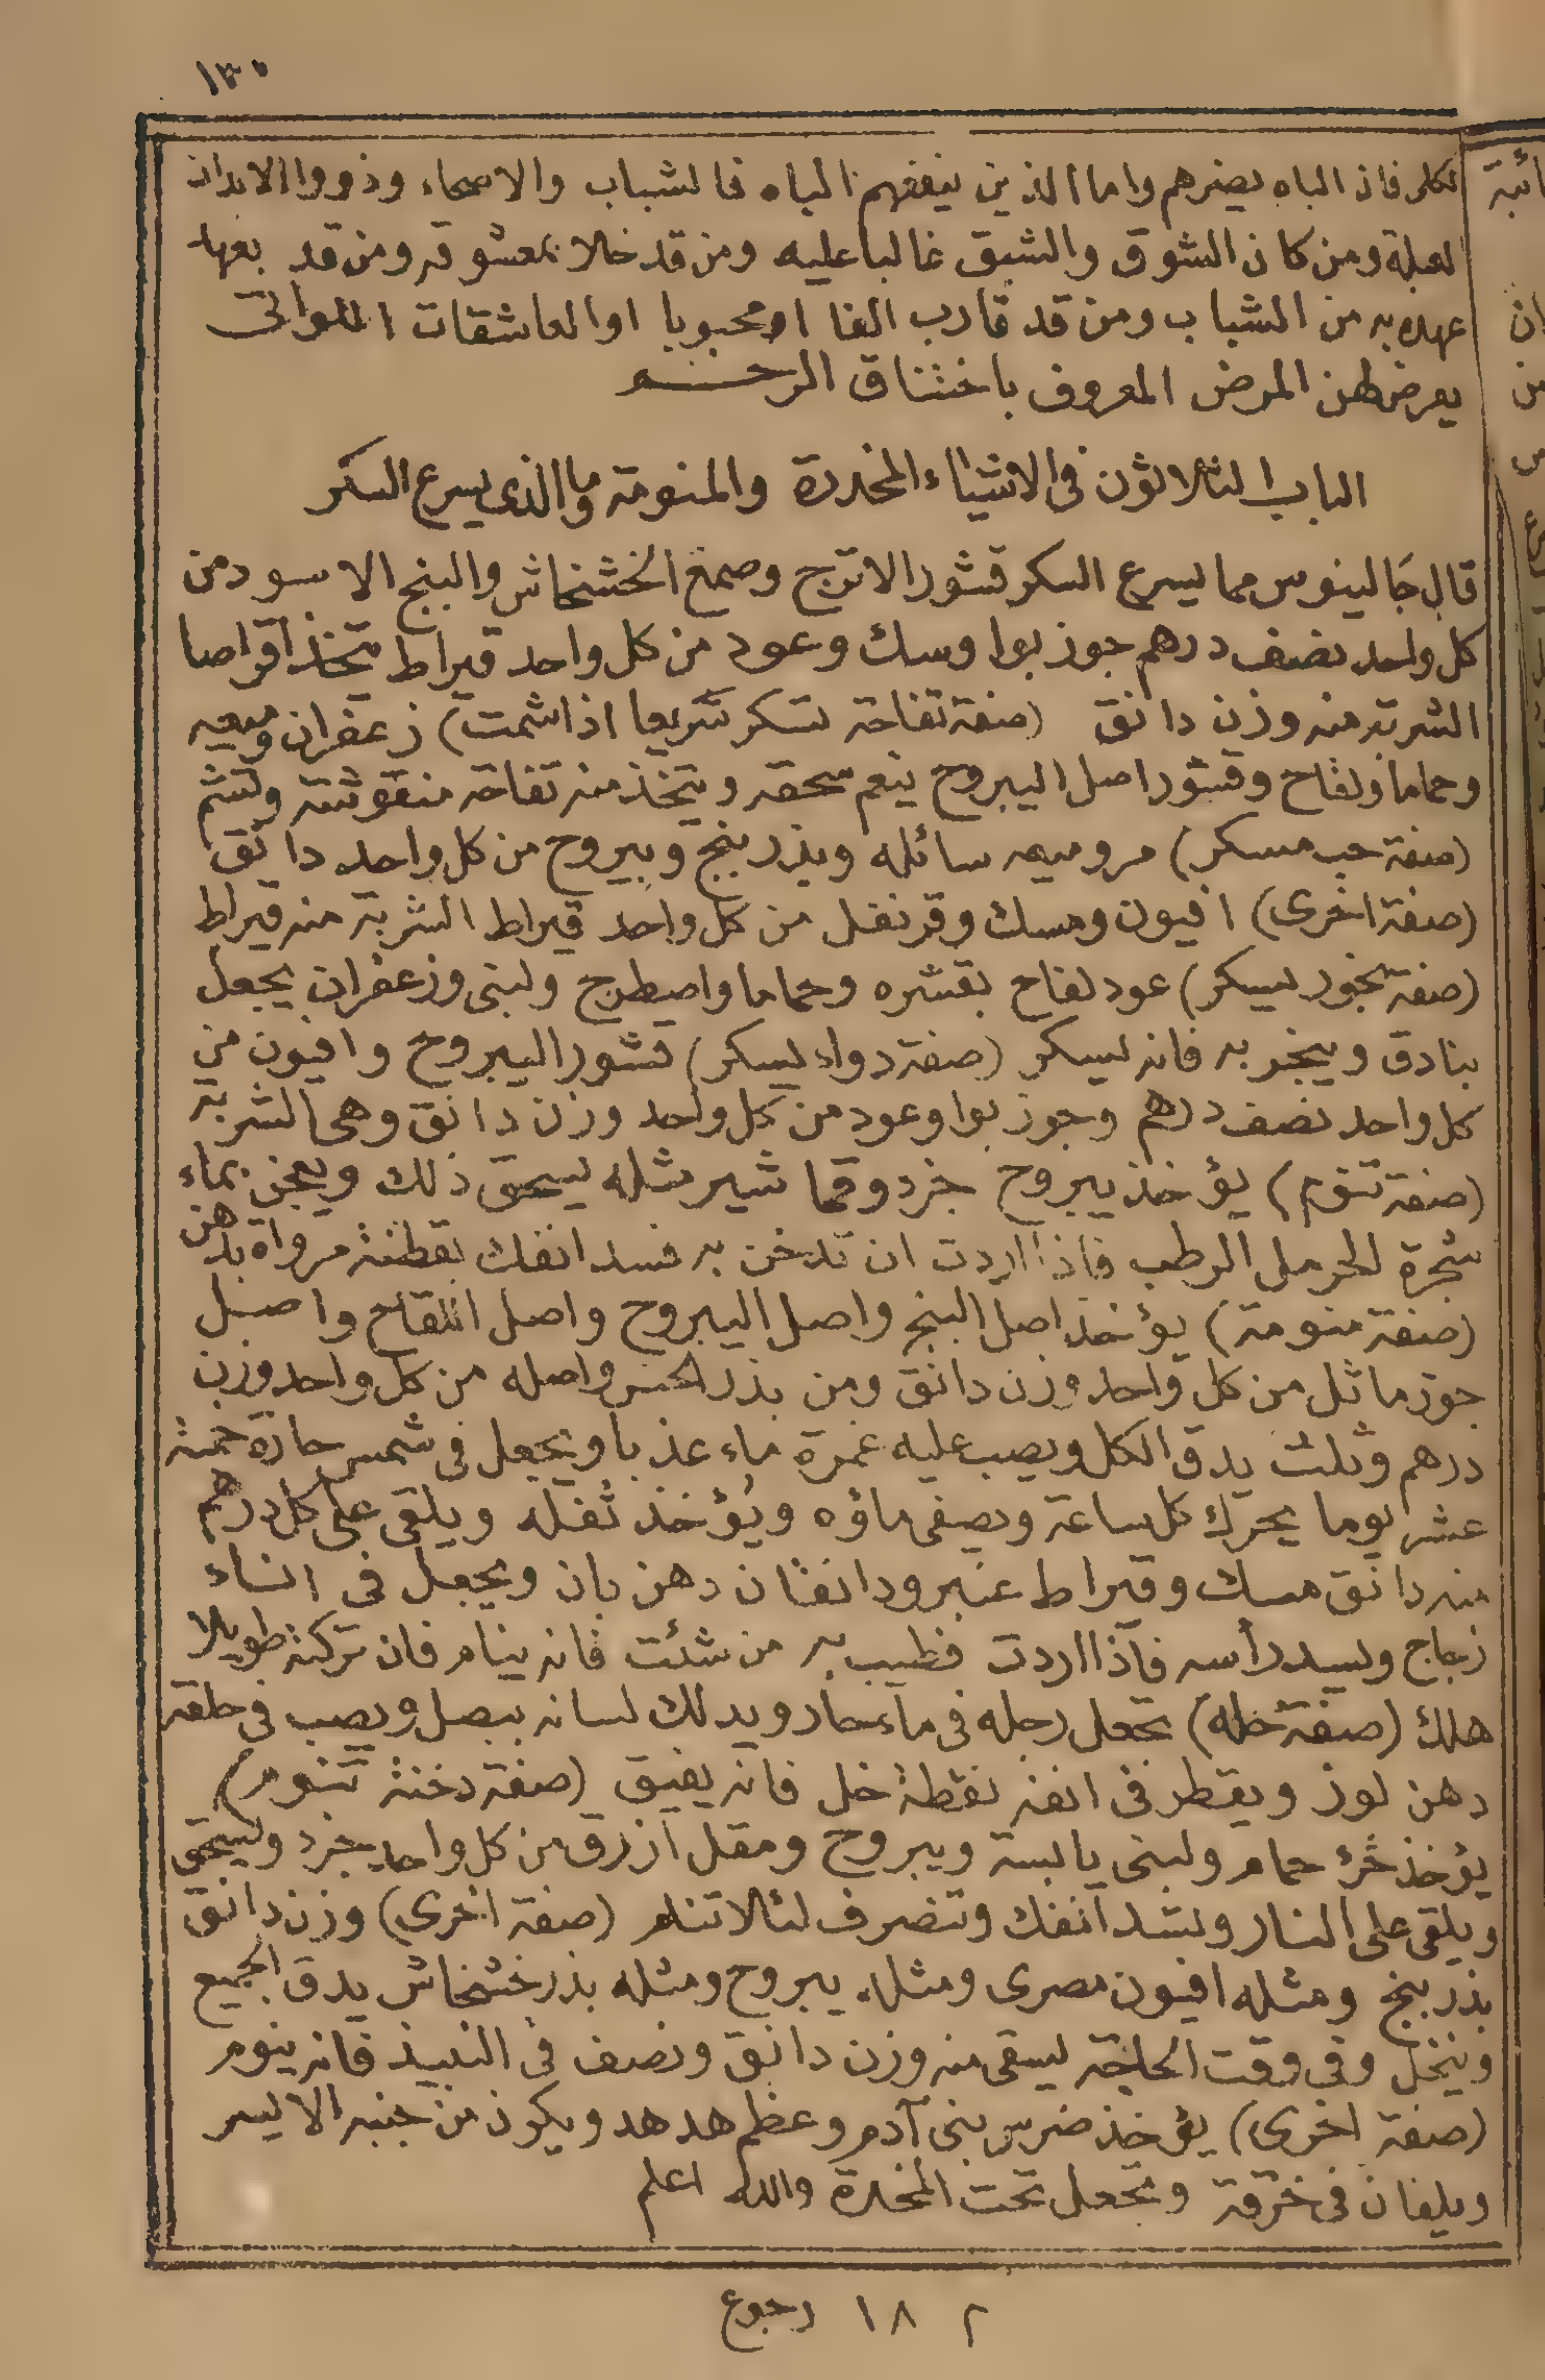 ١٣٠
لكل فان الباه يضرهم واما الذين ينفعهم الباه فالشباب والاصحاء وذووا الابدان
لعبلة ومن كان الشوق والشبق غالبا عليه ومن قد خلا بمعشوقه ومن قد بعد
عهده به من الشباب ومن قد قارب الفا او محبوبا او العاشقات اللواتى
يعرض لهن المرض المعروف باختناق الرحم
الباب الثلاثون فى الاشياء المخدرة والمنومة وما الذى يسرع السكر
قال جالينوس مما يسرع السكر قشور الاترج وصمغ الخشخاش والبنج الاسود من
كل واحد نصف درهم جوز بوا وسك وعود من كل واحد قيراط يتخذ اقراصا
الشربة منه وزن دانق (صفة تفاحة تسكر سريعا اذا شمت) زعفران وميعه
وحماما ولفاح وقشور اصل اليبروح ينعم سحقه ويتخذ منه تفاحة منقوشة وتشم
(صفة حب مسكر) مر وميعه سائله وبذر بنج ويبروح من كل واحد دانق
(صفة اخرى) افيون ومسك وقرنفل من كل واحد قيراط الشربة منه قيراط
(صفة بخور يسكر) عود لفاح بقشره وحماما واصطرج ولبنى وزعفران يجعل
بنادق ويبخر به فانه يسكر (صفة دواء يسكر) قشور اليبروح وافيون من
كل واحد نصف درهم وجوز بوا وعود من كل واحد وزن دانق وهى الشربة
(صفة تنوم) يؤخذ يبروح جزء وقما شير مثله يسحق ذلك ويعجن بماء
شجرة الحرمل الرطب فاذا اردت ان تدخن به فسد انفك بقطنة مرواة بدهن
(صفة منومة) يؤخذ اصل البنج واصل اليبروح واصل اللفاح واصل
جوز ماثل من كل واحد وزن دانق ومن بذر الخس واصله من كل واحد وزن
درهم وثلث يدق الكل ويصب عليه غمرة ماء عذبا ويجعل فى شمس حارة خمسة
عشر يوما يحرك كل ساعة ويصفى ماؤه ويؤخذ ثفله ويلقى على كل درهم
منه دانق مسك وقيراط عنبر ودانقان دهن بان ويجعل فى اناء
زجاج ويسد رأسه فاذا اردت فطيب به من شئت فانه ينام فان تركته طويلا
هلك (صفة حله) تجعل رجله فى ماء حار ويدلك لسانه ببصل ويصب فى حلقه
دهن لوز ويقطر فى انفه نقطة خل فانه يفيق (صفة دخنة تنوم)
يؤخذ خرء حمام ولبنى يابسة ويبروح ومقل ازرق من كل واحد جزء ويسحق
ويلقى على النار ويشد انفك وتنصرف لئلا تنام (صفة اخرى) وزن دانق
بذر بنج ومثله افيون مصرى ومثله يبروح ومثله بذر خشخاش يدق الجميع
وينخل وفى وقت الحاجة يسقى منه وزن دانق ونصف فى النبيذ فانه ينوم
(صفة اخرى) يؤخذ ضرس بنى آدم وعظم هدهد ويكون من جنبه الايسر
ويلفان فى خرقة وتجعل تحت المخدة والله اعلم
٢ ١٨ رجوع